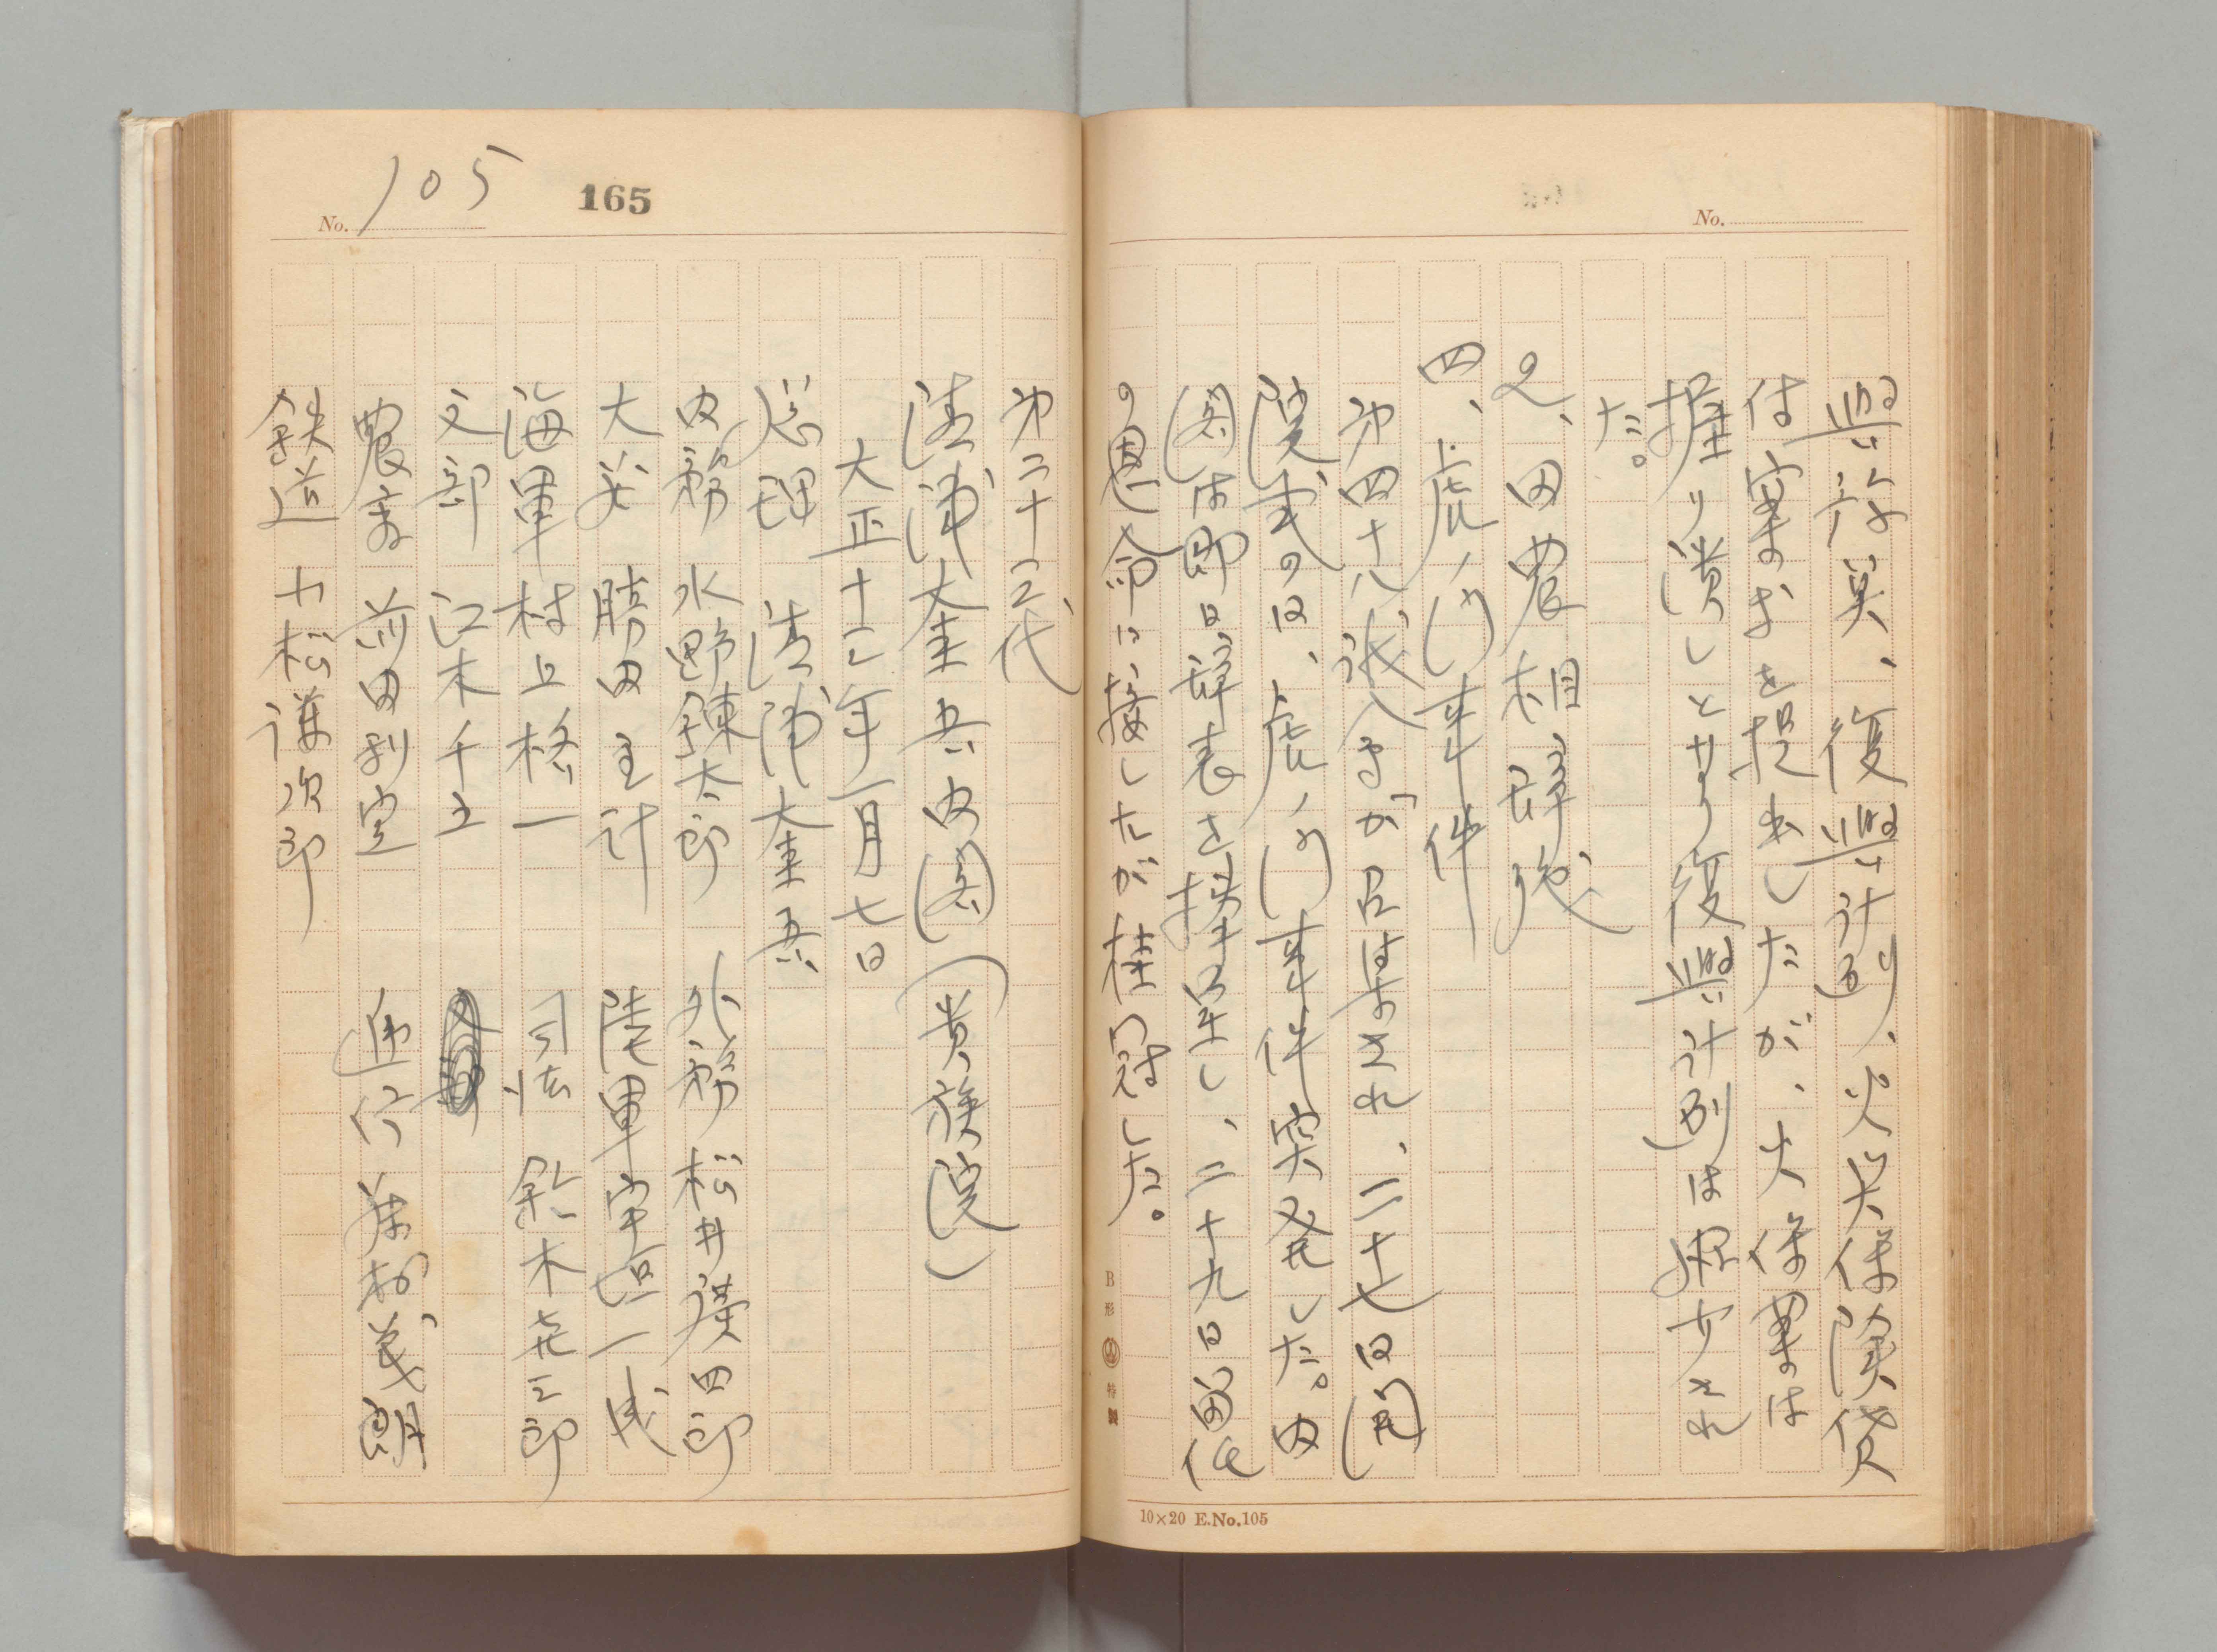 No.
興部算、復興計劃、火災保険貸
付案等を提出したが、火保案は
握り潰しとなり復興計劃は減少され
た。
2、田農相辞職
四、虎ノ門事件
第四十八議会が召集され、二十七日開
院式の日、虎ノ門事件突発した。内
閣は即日辞表を捧呈し、二十九日留任
の恩命に接したが挂冠した。
B形 特製
10×20 E.No.105
105
165
No.
第二十三代
清浦奎吾内閣(貴族院)
大正十三年一月七日
総理 清浦奎吾
内務 水野錬太郎 外務 松井慶四郎
大蔵 勝田主計 陸軍 宇垣一成
海軍 村上格一 司法 鈴木喜三郎
文部 江木千之
農商 前田利定 逓信 藤村義朗
鉄道 小松謙次郎